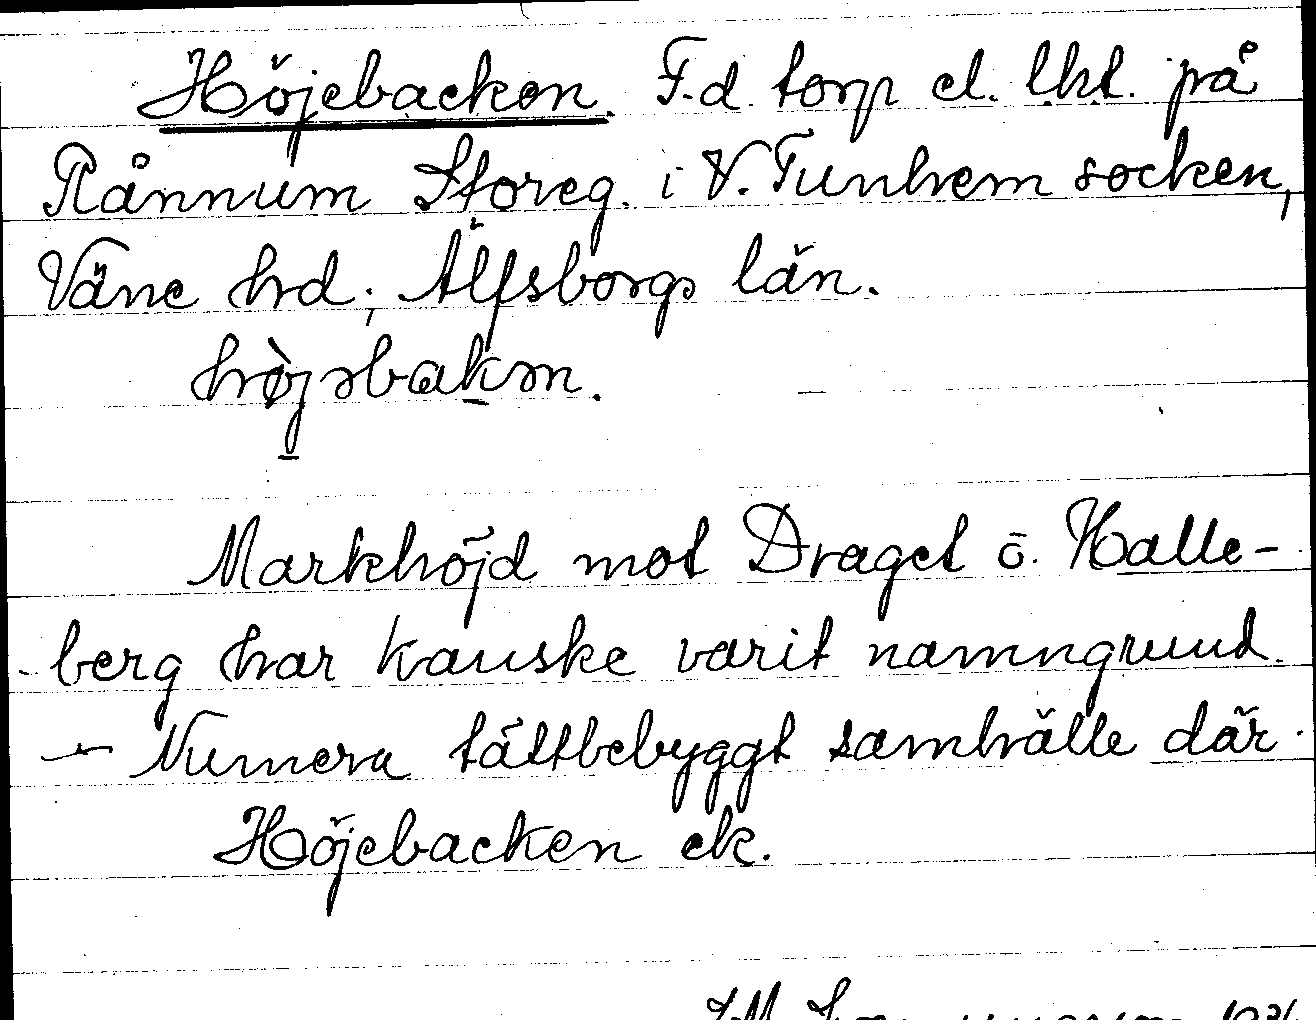 Höjebacken. F.d. torp el. lht. på
Rånnum Storeg. i V. Tunhem socken,
Väne hrd, Älfsborgs län.
hø̀jəbakən.
Markhöjd mot Draget ö. Halle-
berg har kanske varit namngrund.
– Numera tättbebyggt samhälle där.
Höjebacken ek.